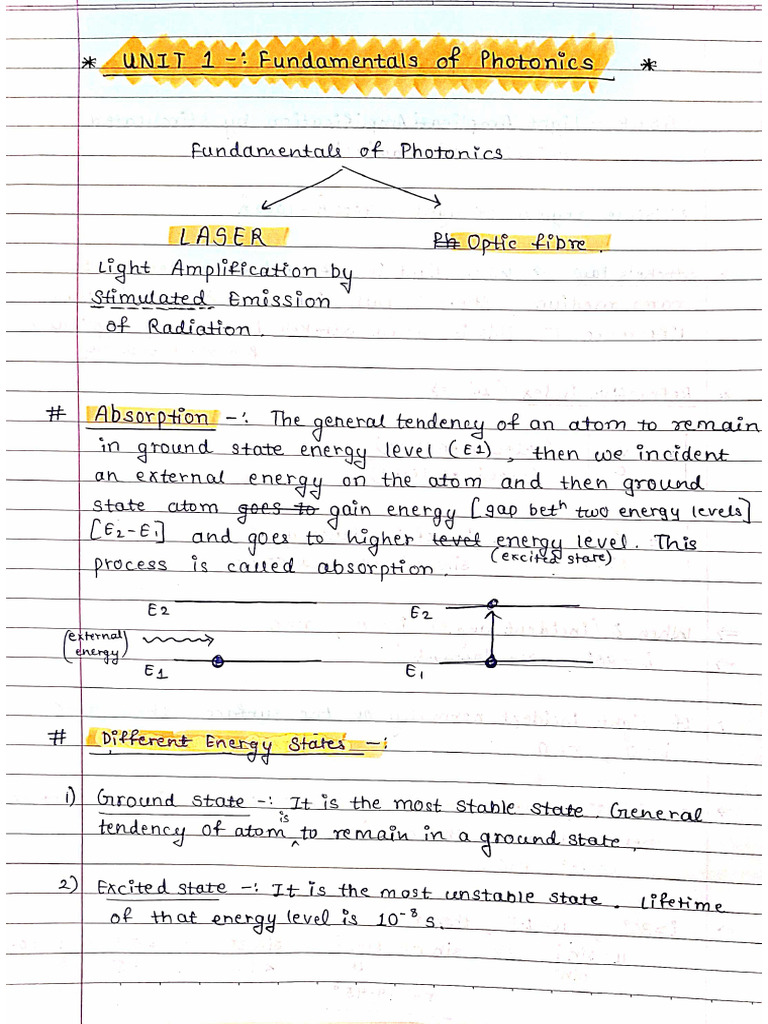 * UNIT 1 -: Fundamentals of Photonics *
Fundamentals of Photonics
LASER
Ph Optic fibre.
Light Amplification by
Stimulated Emission
of Radiation.
# Absorption -: The general tendency of an atom to remain
in ground state energy level (E1), then we incident
an external energy on the atom and then ground
state atom goes to gain energy [gap betⁿ two energy levels]
[E2-E1] and goes to higher level energy level. This
(excited state)
process is called absorption.
E2
E2
(external energy)
E1
E1
# Different Energy States -:
1) Ground state -: It is the most stable state. General
tendency of atom is to remain in a ground state.
2) Excited state -: It is the most unstable state. Lifetime
of that energy level is 10⁻⁸ s.